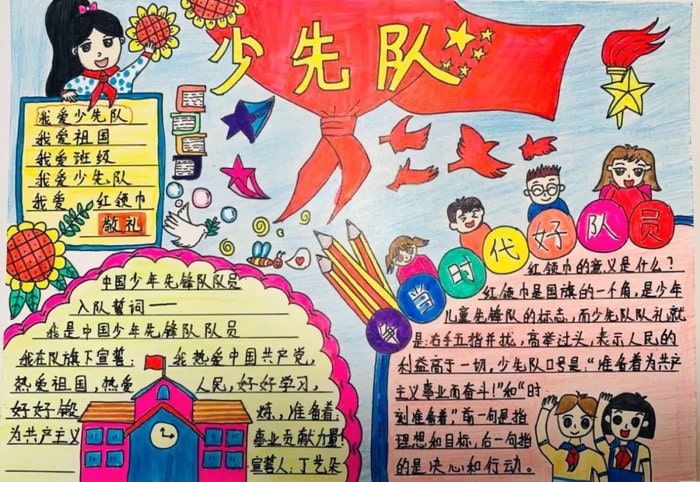 少先队
我爱少先队
我爱祖国
我爱班级
我爱少先队
我爱 红领巾
敬礼
争当时代好队员
中国少年先锋队队员
入队誓词——
我是中国少年先锋队队员
我在队旗下宣誓： 我热爱中国共产党，
热爱祖国，热爱 人民，好好学习，
好好锻 炼，准备着：
为共产主义 事业贡献力量！
宣誓人：丁艺朵
红领巾的意义是什么？
红领巾是国旗的一个角，是少年
儿童先锋队的标志，而少先队队礼就
是：右手五指并拢，高举过头，表示人民的
利益高于一切，少先队口号是：“准备着为共产
主义事业而奋斗！”和“时
刻准备着”，前一句是指
理想和目标，后一句指
的是决心和行动。